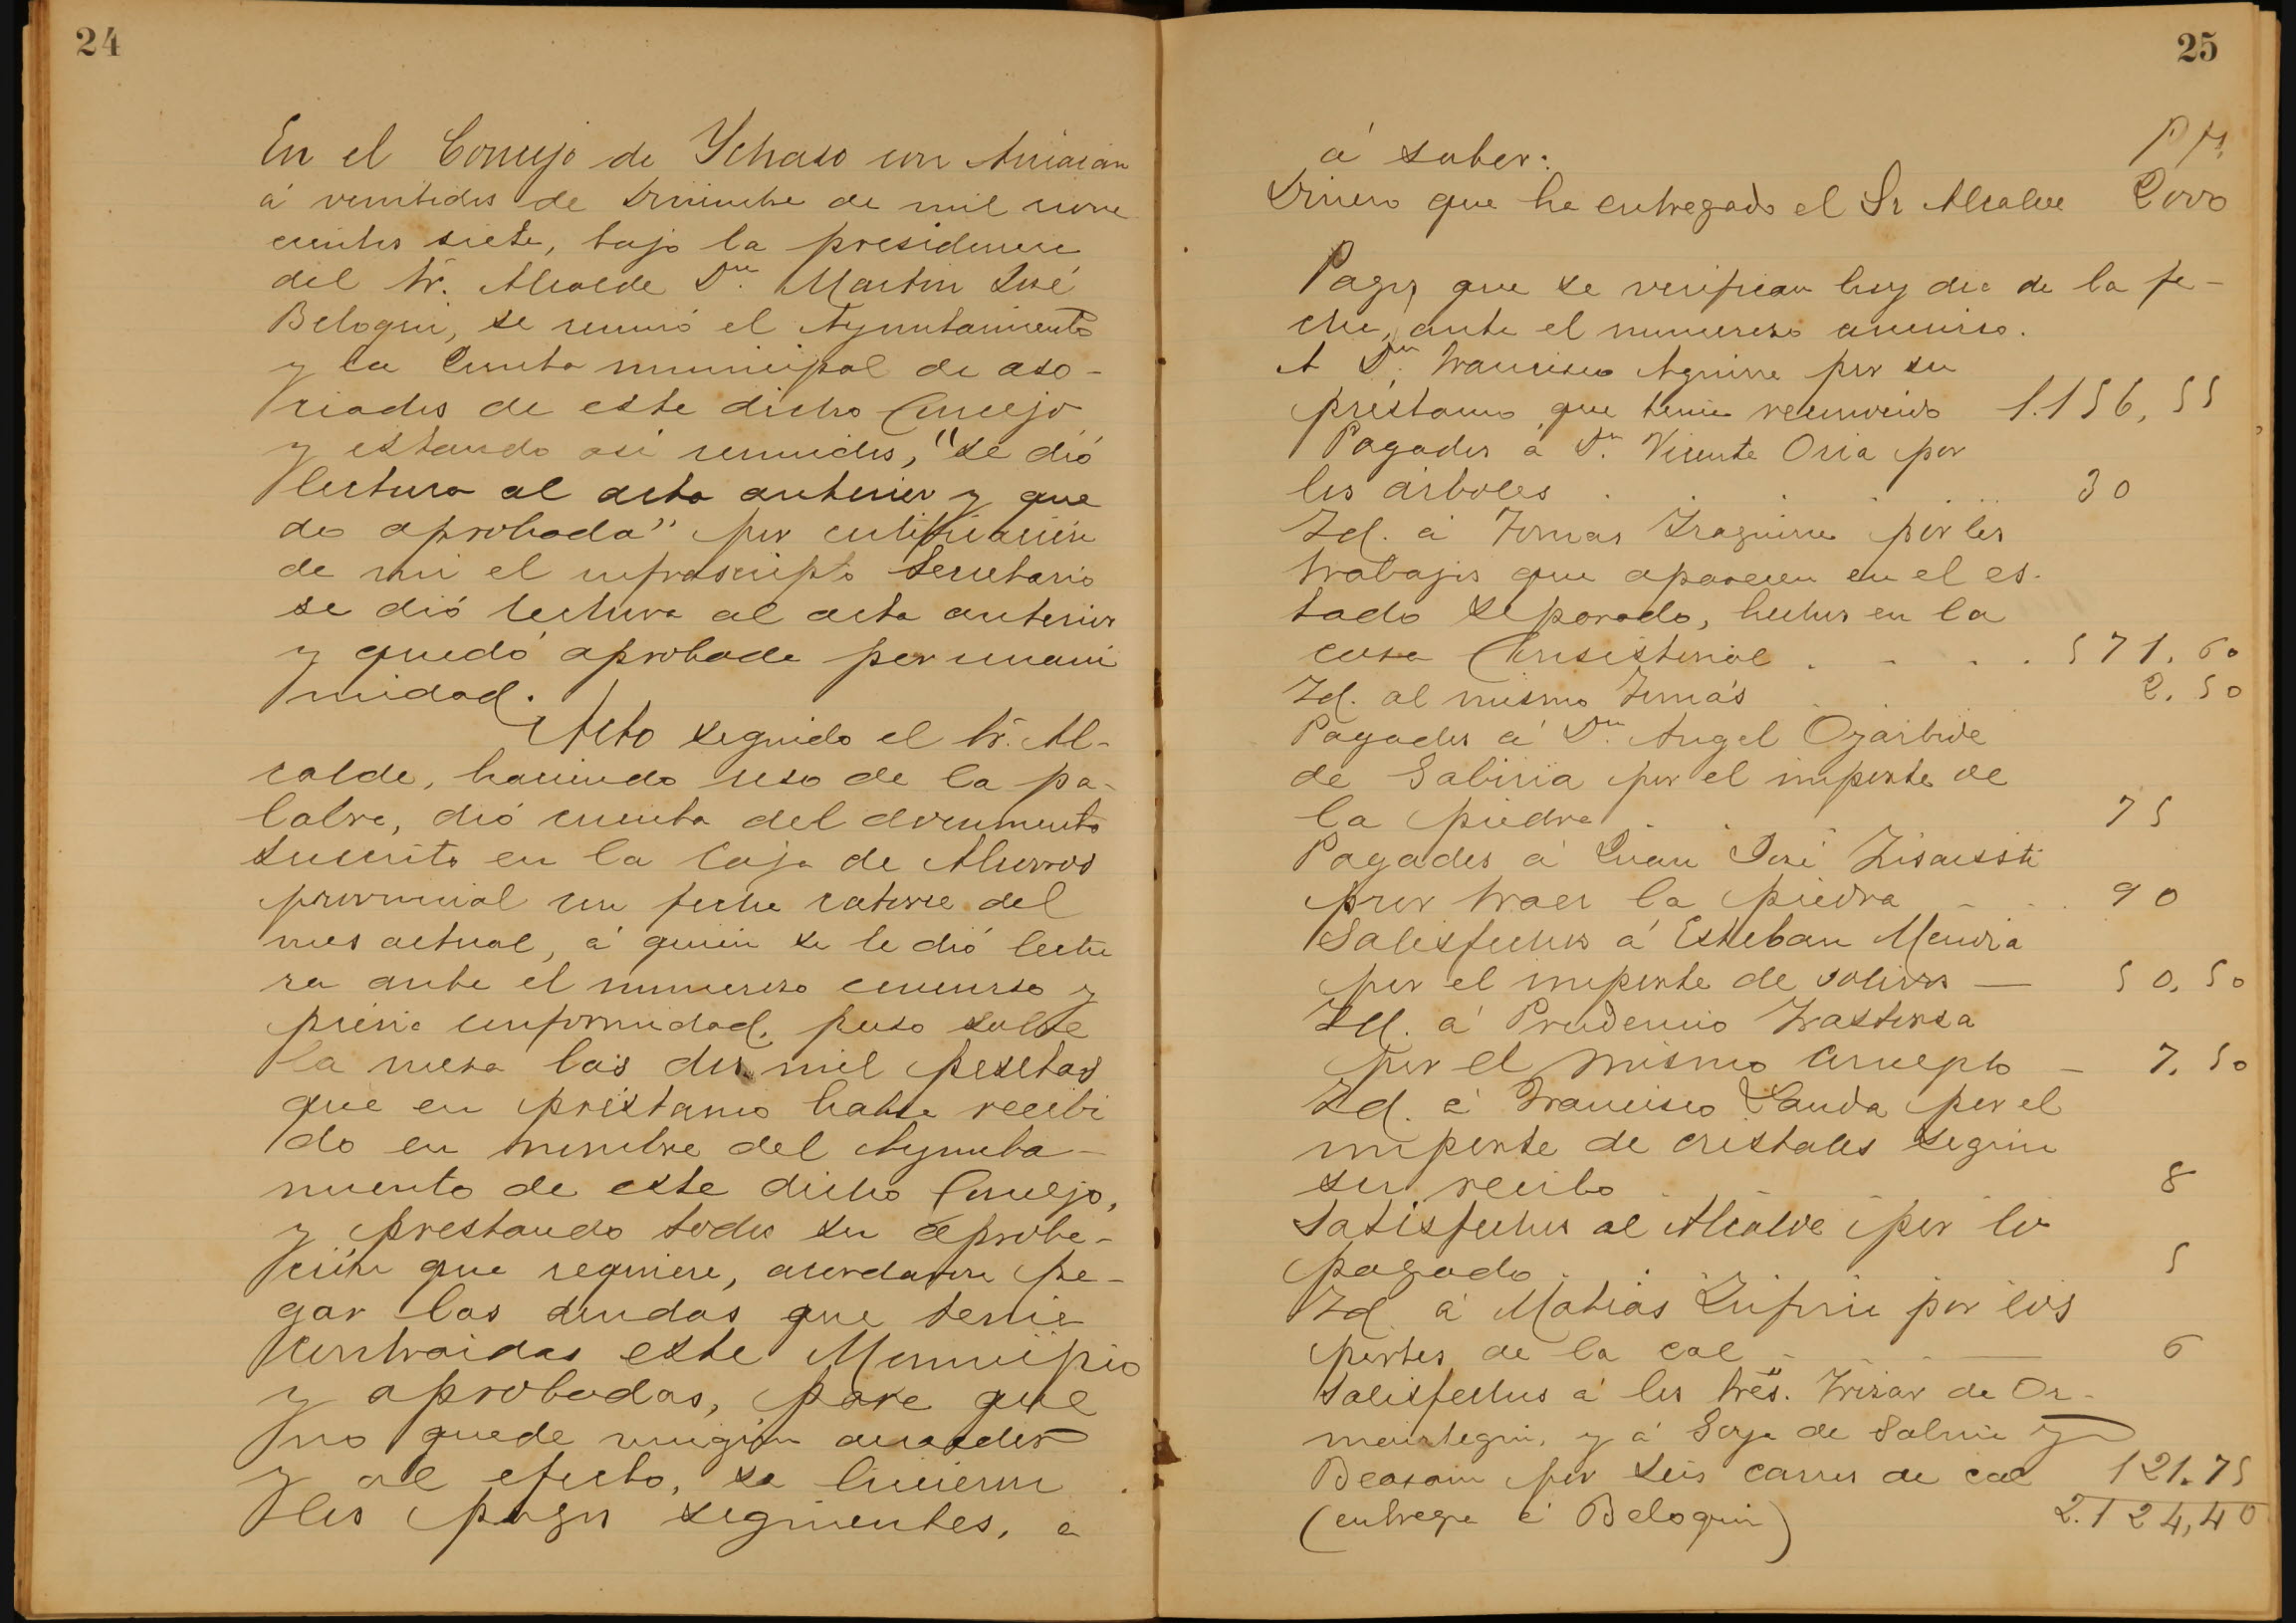 24
En el Concejo de Ychaso con Arriarán
á veintidos de Diciembre de mil nove
cientos siete, bajo la presidencia
del Sr. Alcalde Dn. Martin José
Beloqui, se reunió el Ayuntamiento
y la Junta municipal de aso-
ciados de este dicho Concejo
y estando así reunidos, "se dió
lectura al acta anterior y que
do aprobada" por certificación
de mi el infrascripto Secretario
se dió lectura al acta anterior
y quedó aprobada por unani
midad.
Acto seguido el Sr. Al-
calde, haciendo uso de la pa-
labra, dió cuenta del documento
suscrito en la Caja de Ahorros
provincial con fecha catorce del
mes actual, á quien se le dió lectu
ra ante el numeroso concurso y
previa conformidad, puso sobre
la mesa las dos mil pesetas
que en préstamo habia recibi
do en nombre del Ayunta-
miento de este dicho Concejo,
y prestando todos su aproba-
ción que requiere, acordaron pa-
gar las deudas que tenia
contraidas este Municipio
y aprobadas, para que
no quede ningún acreedor
y al efecto, se hicieron
los pagos siguientes, a
25
á saber: Pts.
Dinero que ha entregado el Sr Alcalde 2000
Pagos que se verifican hoy dia de la fe-
cha, ante el numeroso concurso.
A Dn. Francisco Aguirre por su
préstamo que tenia reconocido 1.156,55
Pagados á Dn. Vicente Oria por
los árboles . . . . . 30
Id. á Tomas Iraguirre por los
trabajos que aparecen en el es-
tado separado, hechos en la
casa Consistorial . - . . 571.60
Id. al mismo Tomás 2.50
Pagados á Dn. Angel Ozarbide
de Gabiria por el importe de
la piedra . . 75
Pagados á Juan José
por traer la piedra - - . 90
Satisfechos á Esteban Mendia
por el importe de solivos — 50.50
Id. á Prudencio
por el mismo concepto - 7.50
Id. á Francisco Landa por el
importe de cristales según
su recibo . 8
Satisfechos al Alcalde por lo
pagado . . . 5
Id. á Matias por los
portes de la cal - - — 6
Satisfechos á los Sres. Irizar de Or-
maiztegui, y á de y
Beasain por seis carros de cal 121.75
(entregue á Beloqui) 2.124,40